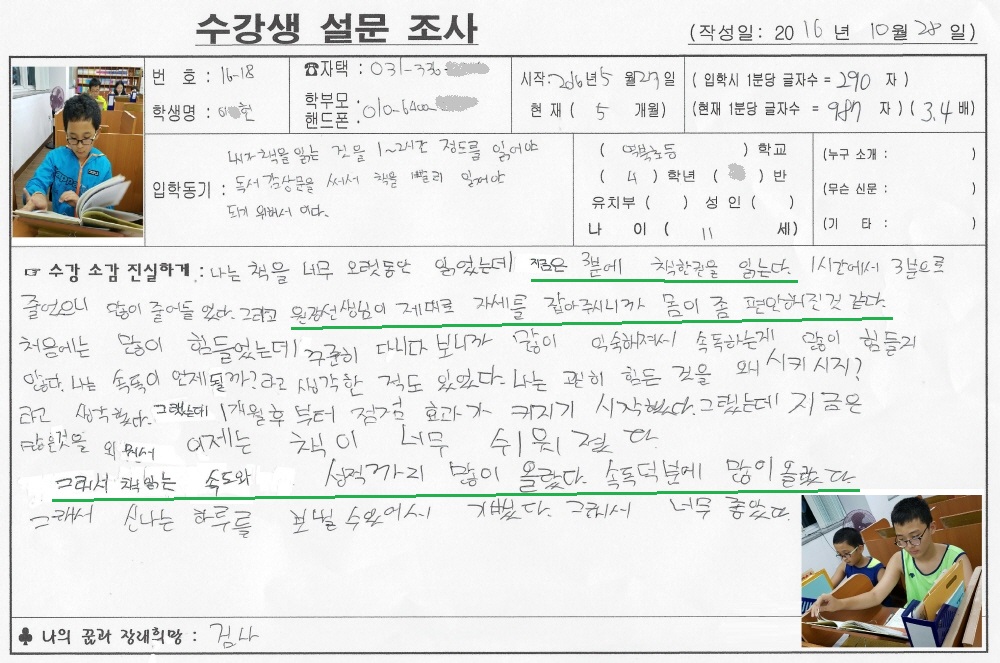 수강생 설문 조사
(작성일: 2016년 10월 28일)
번 호 : 16-18
☎자택 : 031-336-
시작: 2016년 5 월 29일
( 입학시 1분당 글자수 = 290 자 )
학생명 : 이 헌
학부모 핸드폰 : 010-6400-
현 재 ( 5 개월)
(현재 1분당 글자수 = 987 자 ) ( 3.4 배)
입학동기 :
내가 책을 읽는 것을 1~2시간 정도를 읽어야
독서 감상문을 써서 책을 빨리 읽어야
되기 위해서 이다.
( 역북초등 ) 학교
( 4 ) 학년 ( ) 반
유치부 ( ) 성 인 ( )
나 이 ( 11 세)
(누구 소개 : )
(무슨 신문 : )
(기 타 : )
☞ 수강 소감 진실하게 : 나는 책을 너무 오랫동안 읽었는데 지금은 3분에 책한권을 읽는다. 1시간에서 3분으로
줄었으니 많이 줄어들 었다. 그리고 원장선생님이 제대로 자세를 잡아주시니까 몸이 좀 편안해진것 같다.
처음에는 많이 힘들었는데 꾸준히 다니다 보니까 많이 익숙해져서 속독하는게 많이 힘들지
않다. 나는 속독이 언제될까? 라고 생각한 적도 있었다. 나는 괜히 힘든 것을 왜 시키시지?
라고 생각했다. 그랬는데 1개월후 부터 점점 효과가 커지기 시작했다. 그랬는데 지금은
많은것을 외워서 이제는 책이 너무 쉬워졌다.
그래서 책읽는 속도와 성적까지 많이 올랐다. 속독덕분에 많이 올랐다.
그래서 신나는 하루를 보낼 수있어서 기뻤다. 그래서 너무 좋았다.
♣ 나의 꿈과 장래희망 : 검사